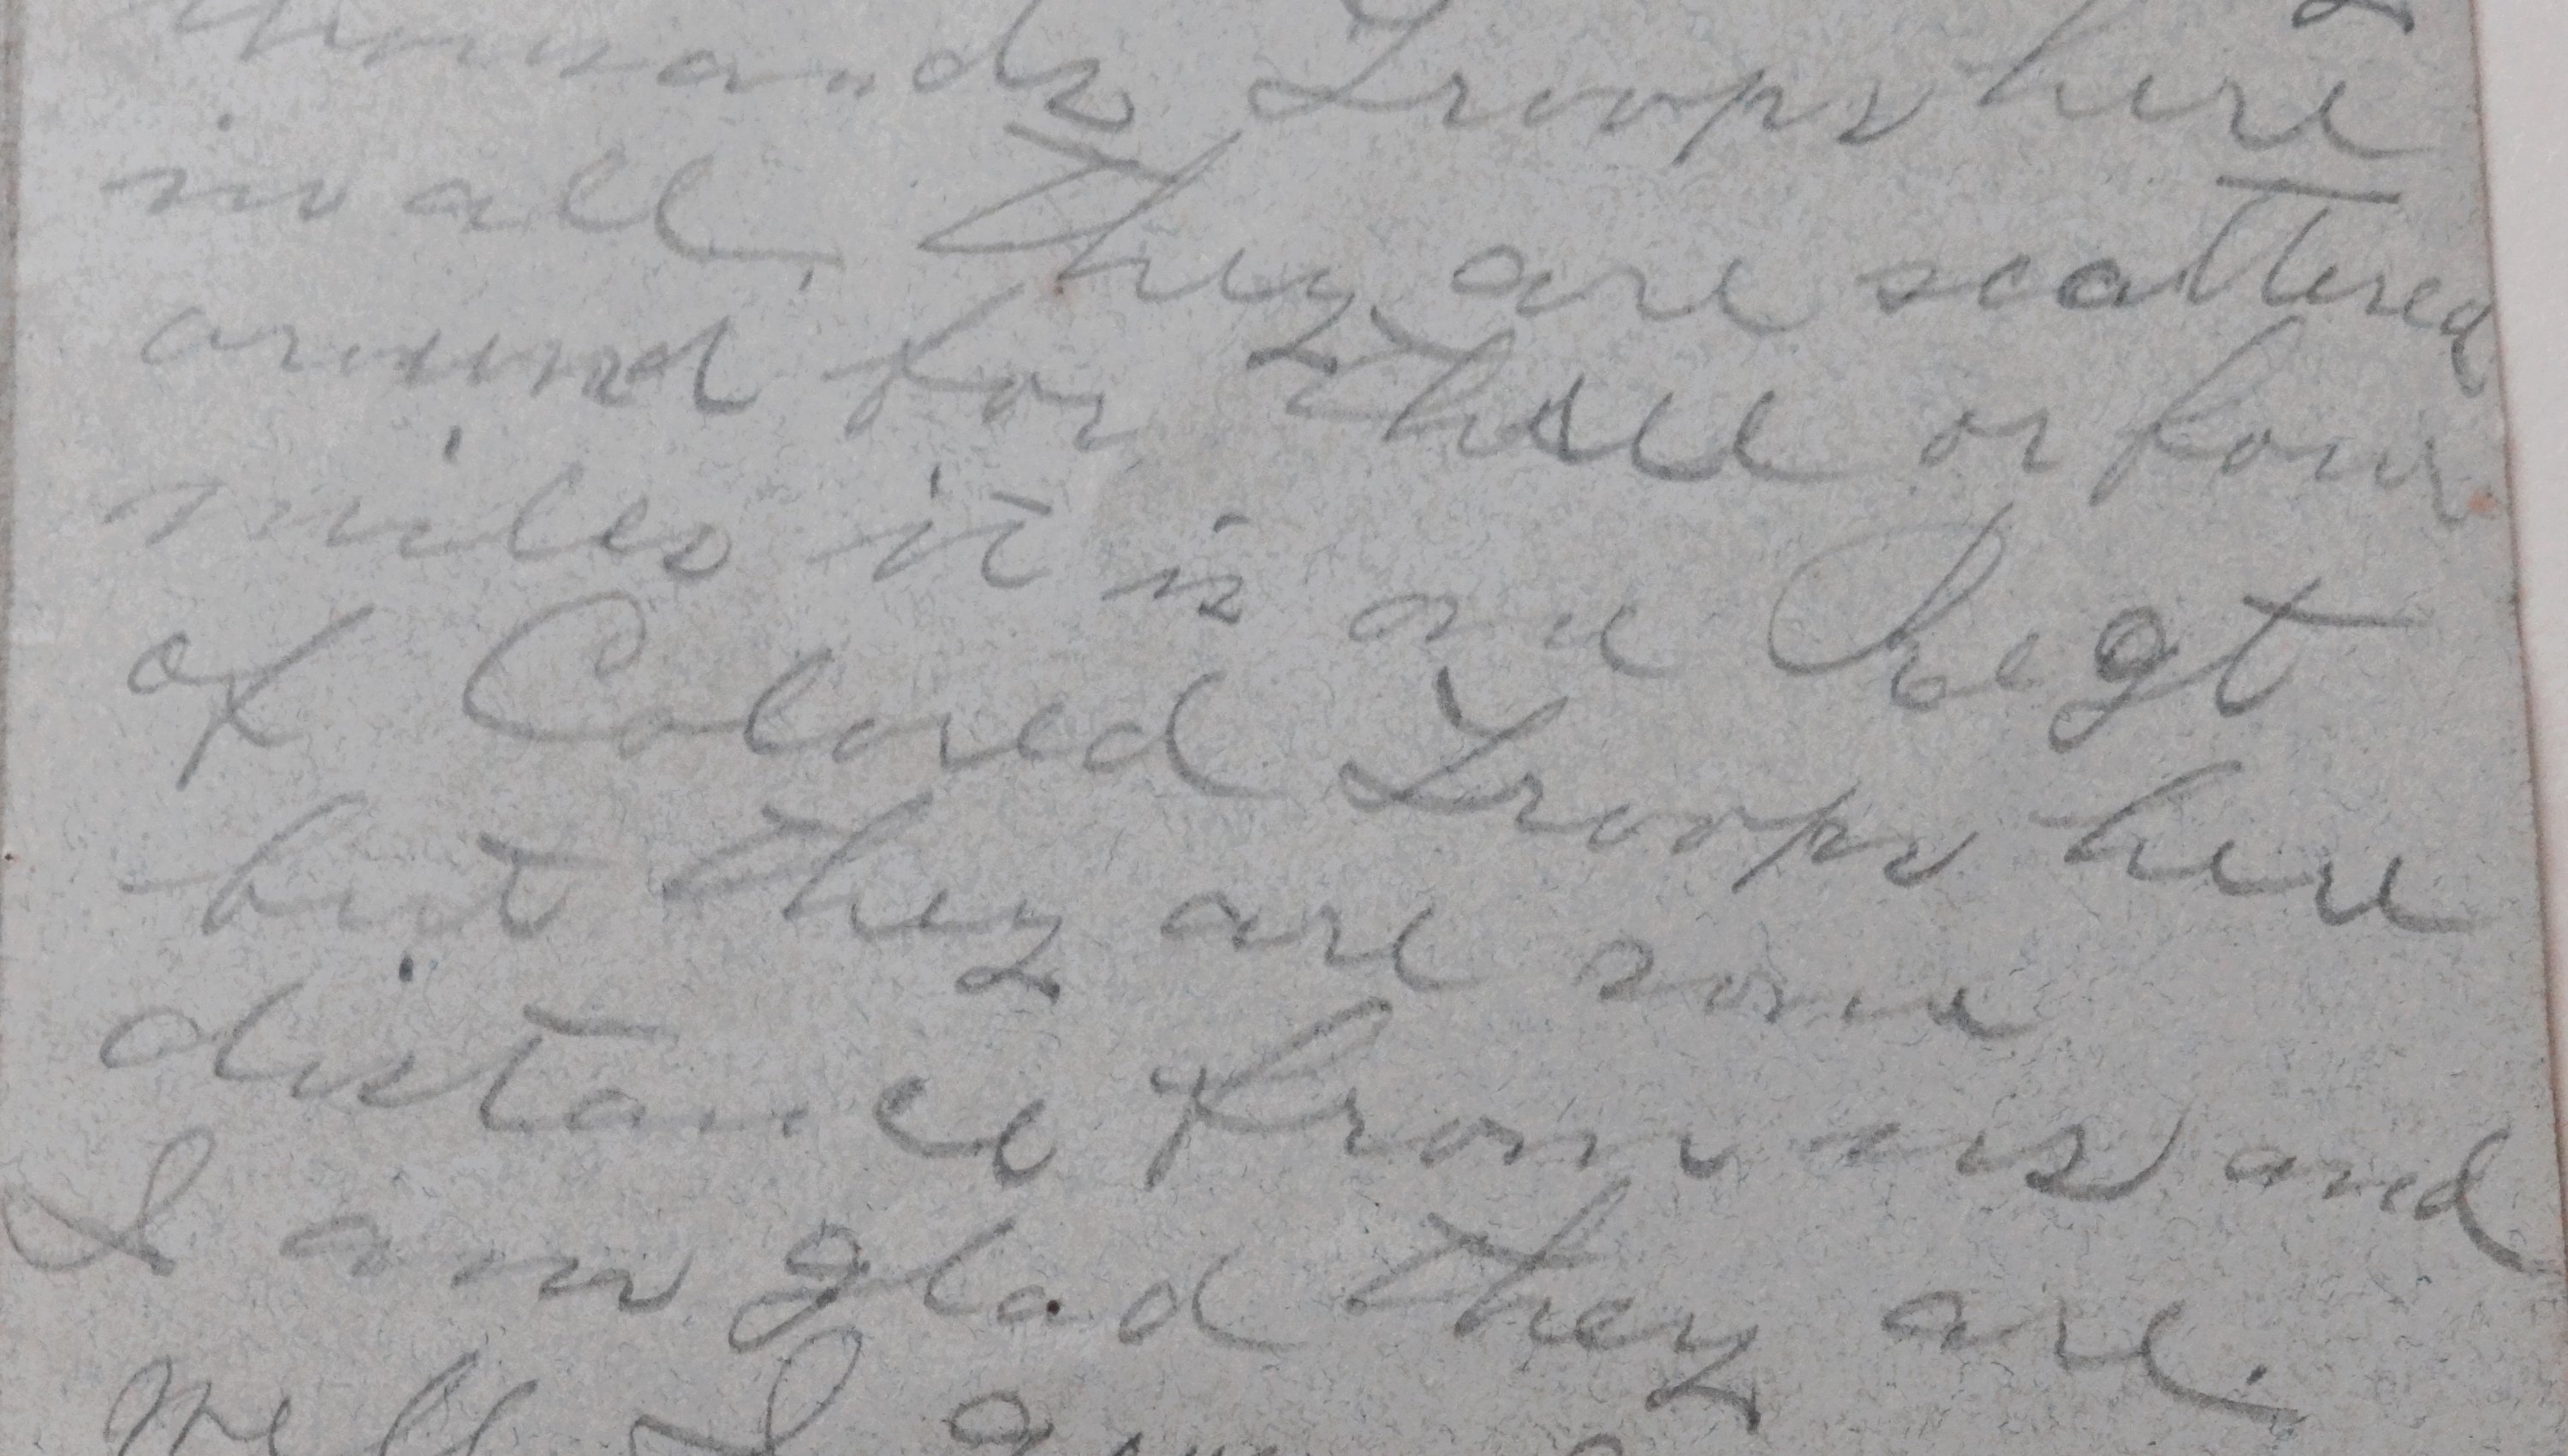 thousands Troops here
in all, They are scattered
around for three or four
miles it is one Regt
of Colored Troops here
but they are some
distance from us and
I am glad they are.
Well I